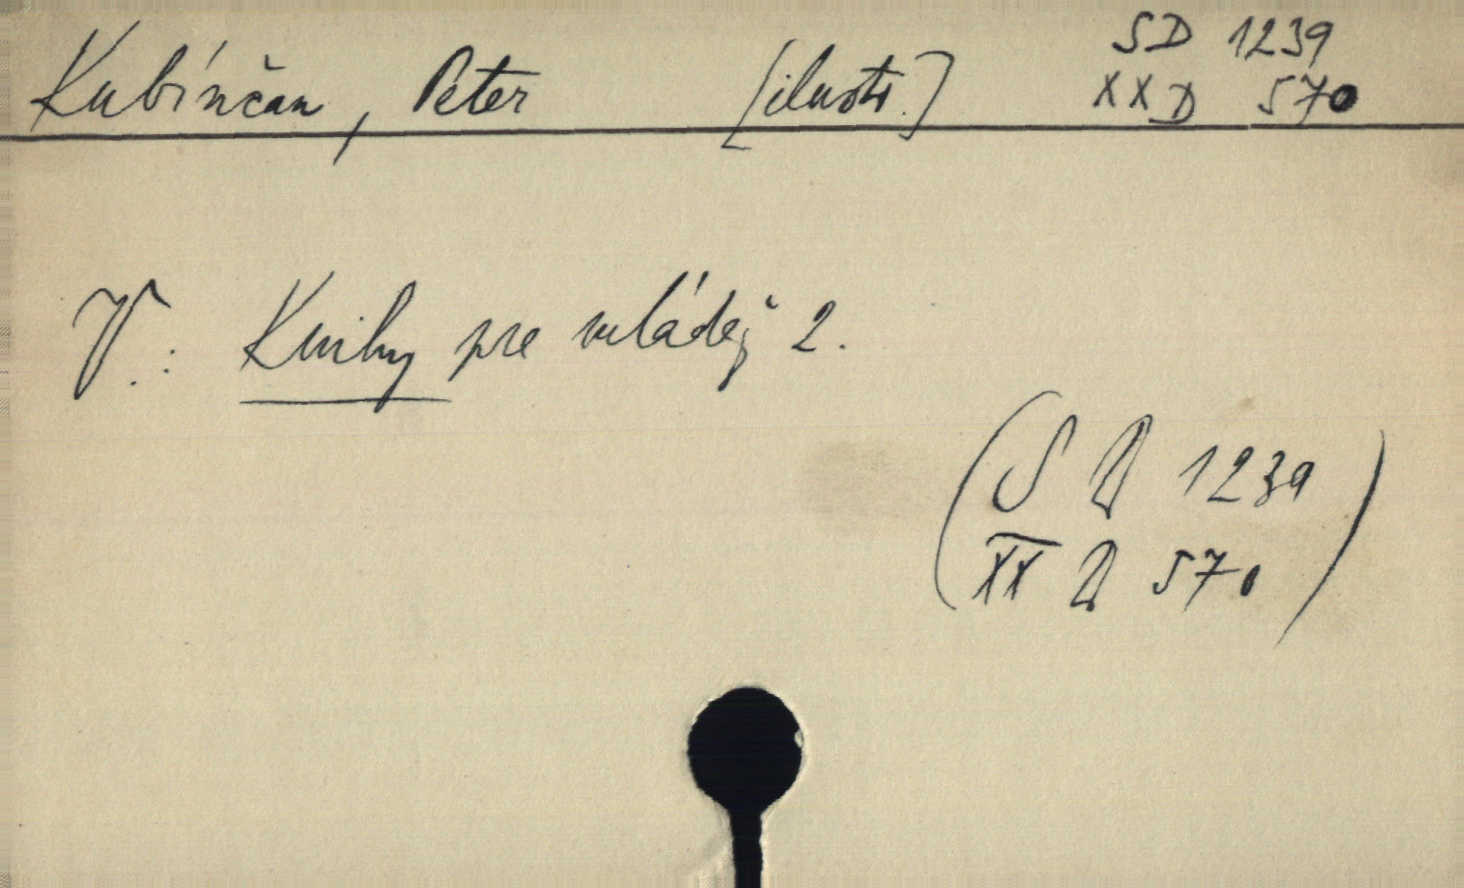 Kubínčan, Peter [ilustr.] SD 1239
XXD 570
V.: Knihy pre mládež 2.
(S D 1239
XX D 570)